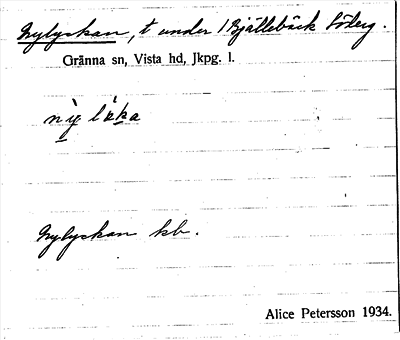 Nylyckan, t under 1 Bjällebäck Söberg.
Gränna sn, Vista hd, Jkpg. l.
Nylyckan kb.
Alice Petersson 1934.